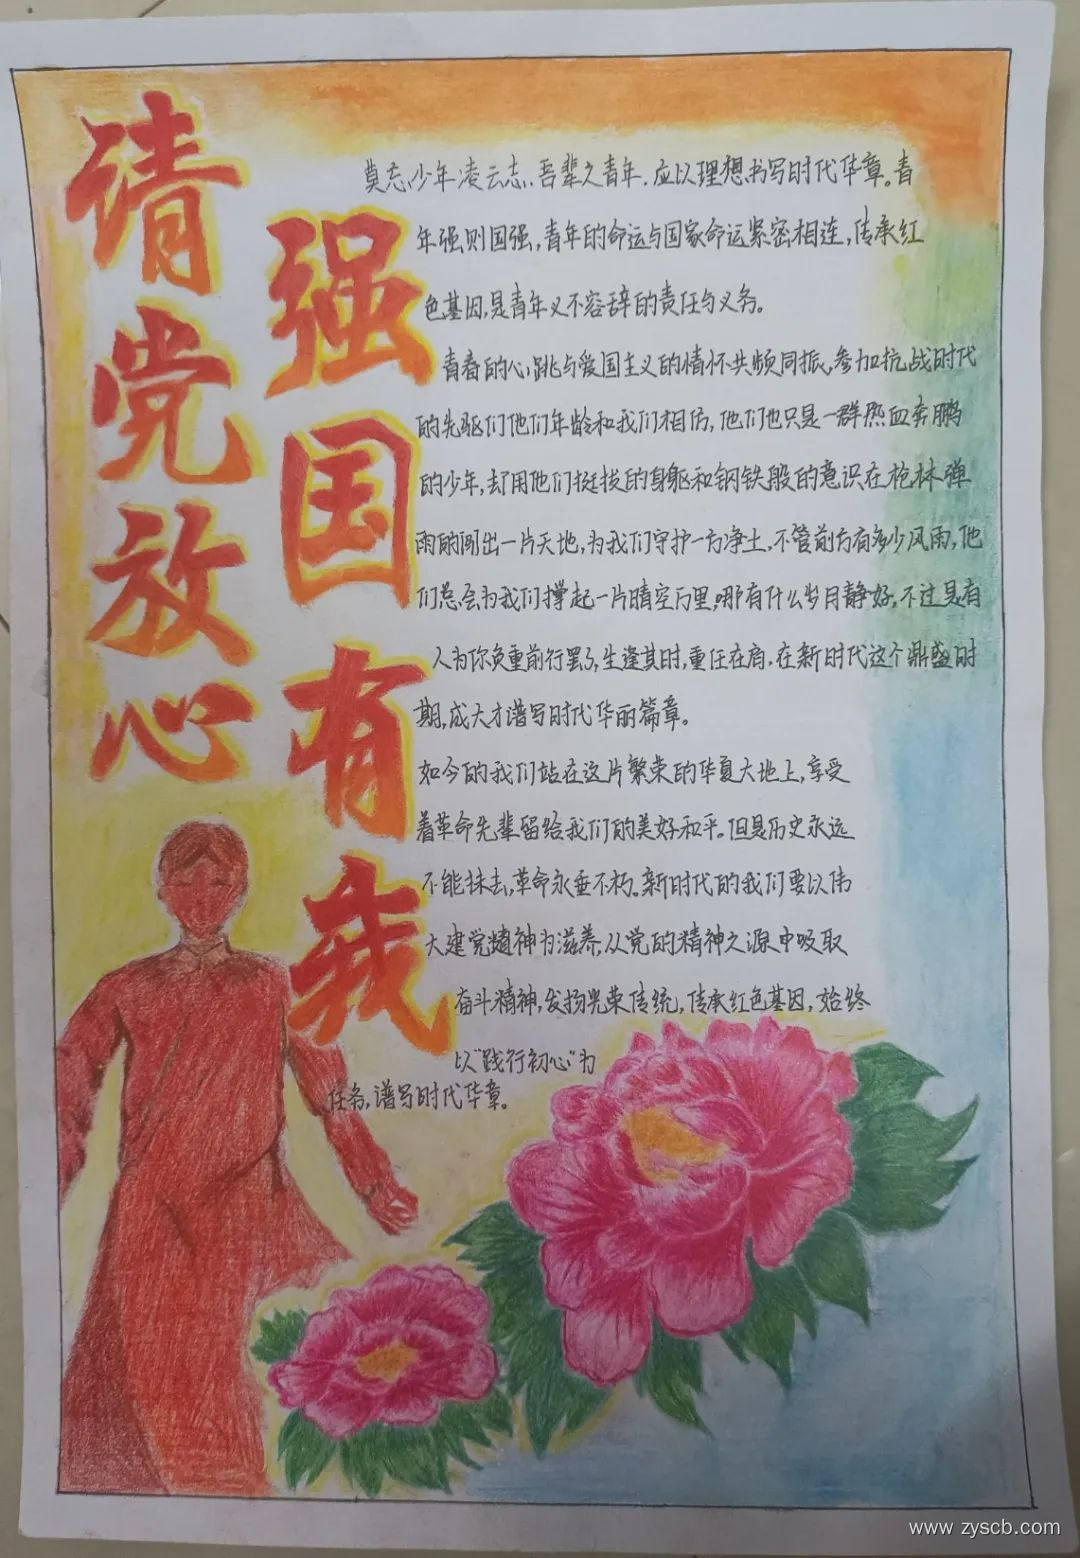 请党放心
强国有我
莫忘少年凌云志,吾辈之青年,应以理想书写时代华章。青
年强则国强,青年的命运与国家命运紧密相连,传承红
色基因,是青年义不容辞的责任与义务。
青春的心跳与爱国主义的情怀共频同振,参加抗战时代
的先驱们他们年龄和我们相仿,他们也只是一群热血奔鹏
的少年,却用他们挺拔的身躯和钢铁般的意识在枪林弹
雨的闯出一片天地,为我们守护一方净土,不管前方有多少风雨,他
们总会为我们撑起一片晴空万里,哪有什么岁月静好,不过是有
人为你负重前行罢了,生逢其时,重任在肩,在新时代这个鼎盛时
期,成大才谱写时代华丽篇章。
如今的我们站在这片繁荣的华夏大地上,享受
着革命先辈留给我们的美好和平。但是历史永远
不能抹去,革命永垂不朽。新时代的我们要以伟
大建党精神为滋养,从党的精神之源中吸取
奋斗精神,发扬光荣传统,传承红色基因,始终
以"践行初心"为
任务,谱写时代华章。
www.zyscb.com